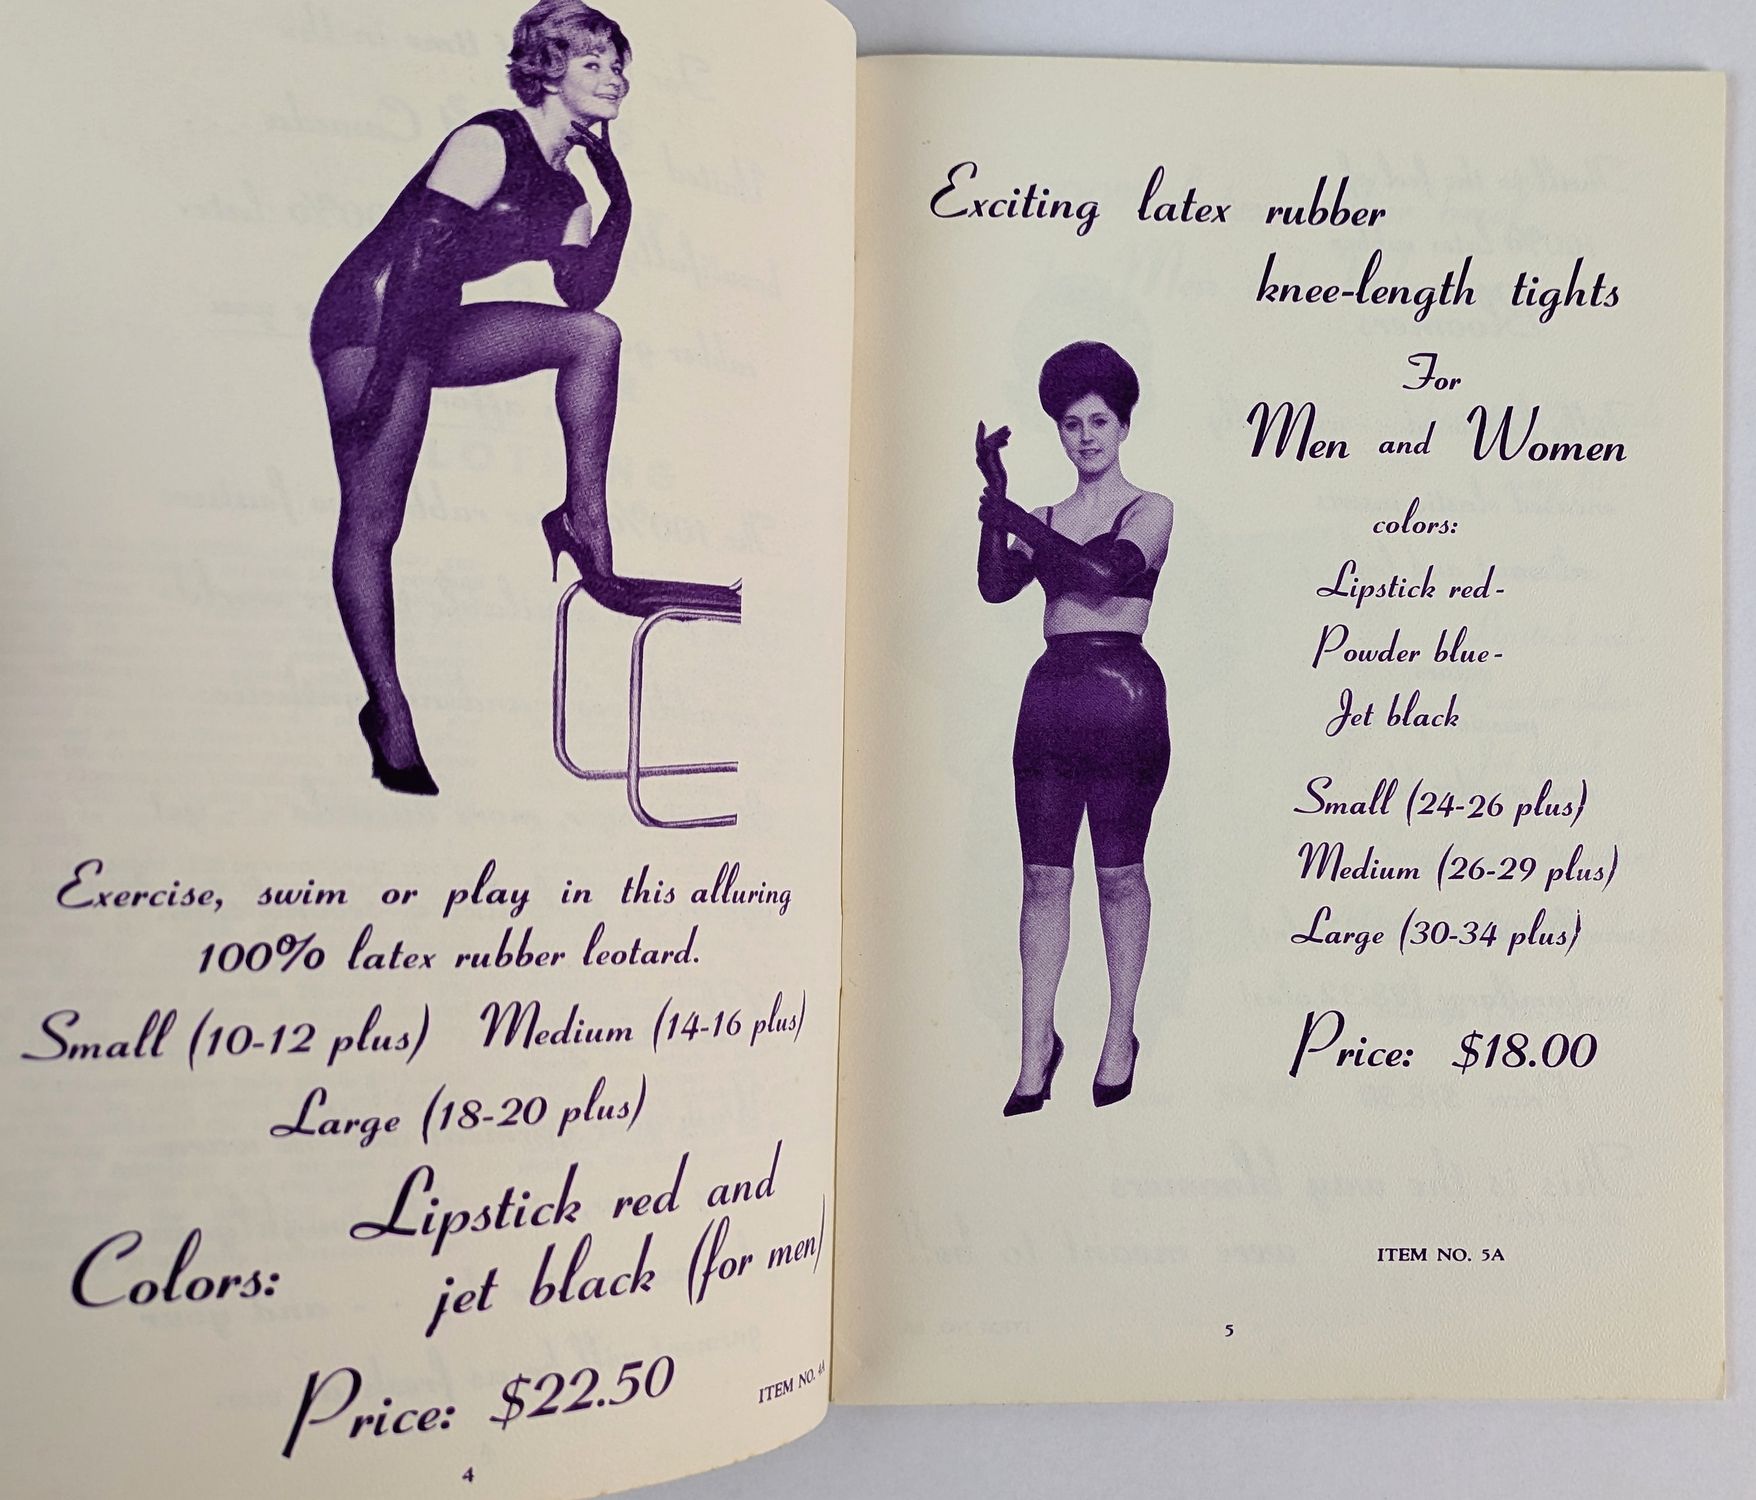 Exercise, swim or play in this alluring
100% latex rubber leotard.
Small (10-12 plus) Medium (14-16 plus)
Large (18-20 plus)
Colors: Lipstick red and
jet black (for men)
Price: $22.50
ITEM NO. 4A
4
Exciting latex rubber
knee-length tights
For
Men and Women
colors:
Lipstick red-
Powder blue-
Jet black
Small (24-26 plus)
Medium (26-29 plus)
Large (30-34 plus)
Price: $18.00
ITEM NO. 5A
5